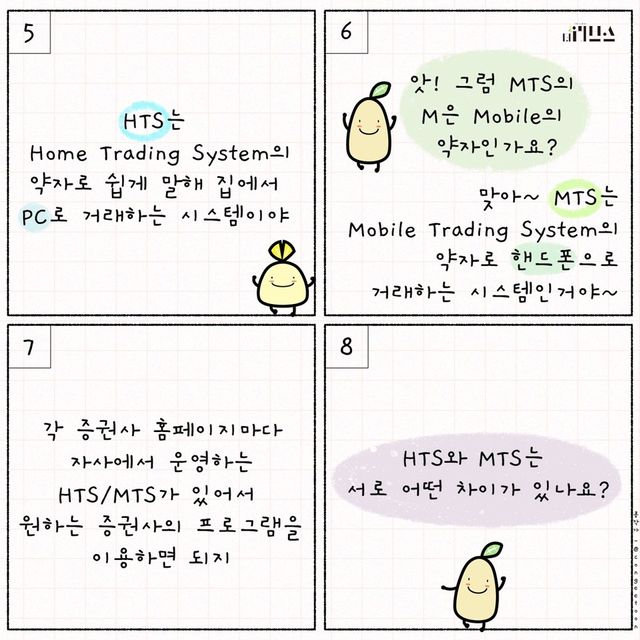 5
HTS는
Home Trading System의
약자로 쉽게 말해 집에서
PC로 거래하는 시스템이야
6
앗! 그럼 MTS의
M은 Mobile의
약자인가요?
맞아~ MTS는
Mobile Trading System의
약자로 핸드폰으로
거래하는 시스템인거야~
7
각 증권사 홈페이지마다
자사에서 운영하는
HTS/MTS가 있어서
원하는 증권사의 프로그램을
이용하면 되지
8
HTS와 MTS는
서로 어떤 차이가 있나요?